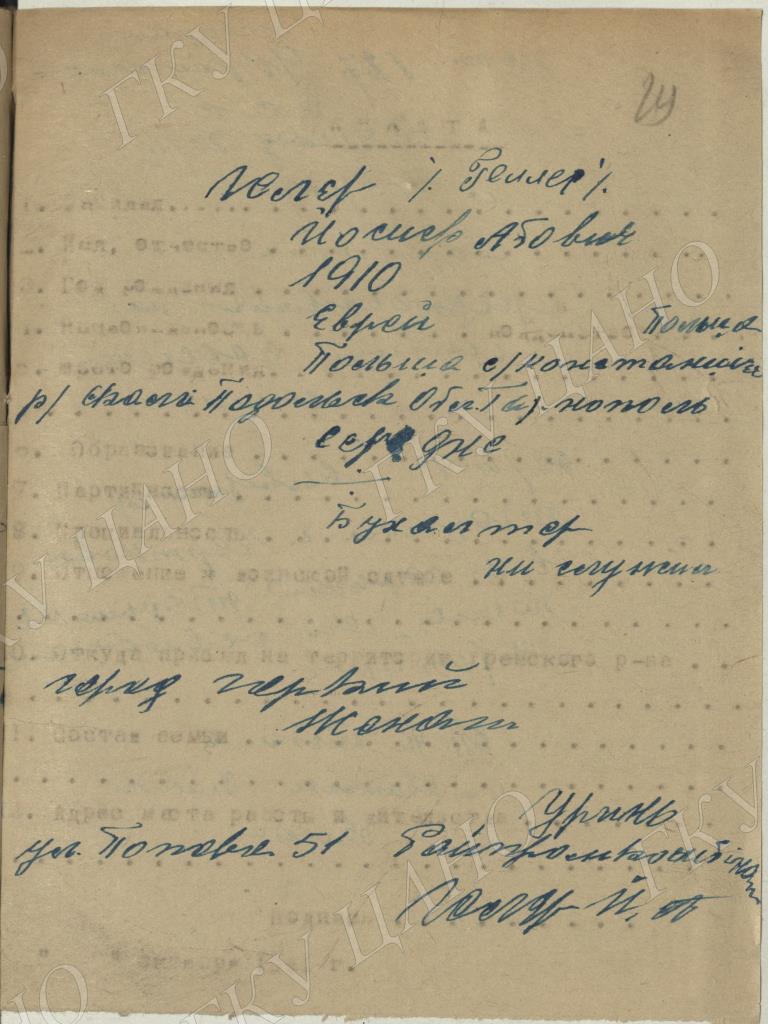 24
АНКЕТА
1. Фамилия Гелер /. Геллер /.
2. Имя, отчество Йосиф Абович
3. Год рождения 1910
4. Национальность Еврей подданство Польша
5. Место рождения. Польша с/
р/ Скала Подольск Обл. Тарнополь
6. Образование середнє
7. Партийность —
8. Специальность Бухалтер
9. Отношение к воинской службе ни служил
10. Откуда прибыл на территорию Уренского р-на
город
Женат
11. Состав семьи
12. Адрес места работы и жительства Уринь
ул. Попова 51 Райпромкомбинат
Гелер Й. А
Подпись
" " октября 19 г.
ГКУ ЦАНО